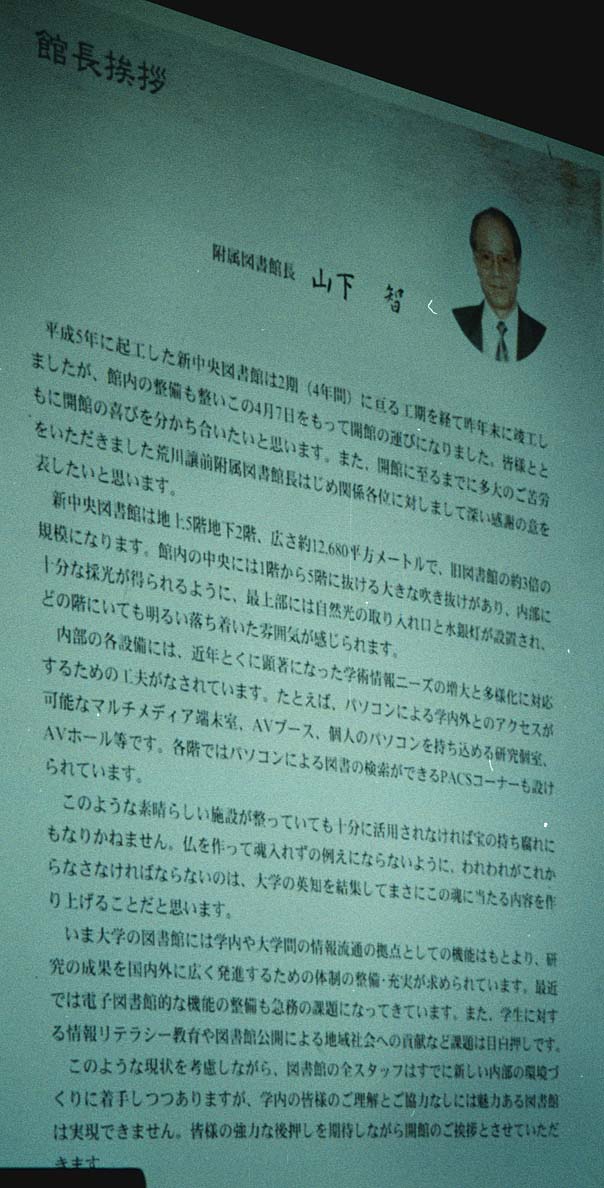 館長挨拶
附属図書館長 山下 智
平成5年に起工した新中央図書館は2期（4年間）に亘る工期を経て昨年末に竣工し
ましたが、館内の整備も整いこの4月7日をもって開館の運びになりました。皆様とと
もに開館の喜びを分かち合いたいと思います。また、開館に至るまでに多大のご苦労
をいただきました荒川譲前附属図書館長はじめ関係各位に対しまして深い感謝の意を
表したいと思います。
新中央図書館は地上5階地下2階、広さ約12,680平方メートルで、旧図書館の約3倍の
規模になります。館内の中央には1階から5階に抜ける大きな吹き抜けがあり、内部に
十分な採光が得られるように、最上部には自然光の取り入れ口と水銀灯が設置され、
どの階にいても明るい落ち着いた雰囲気が感じられます。
内部の各設備には、近年とくに顕著になった学術情報ニーズの増大と多様化に対応
するための工夫がなされています。たとえば、パソコンによる学内外とのアクセスが
可能なマルチメディア端末室、AVブース、個人のパソコンを持ち込める研究個室、
AVホール等です。各階ではパソコンによる図書の検索ができるPACSコーナーも設け
られています。
このような素晴らしい施設が整っていても十分に活用されなければ宝の持ち腐れに
もなりかねません。仏を作って魂入れずの例えにならないように、われわれがこれか
らなさなければならないのは、大学の英知を結集してまさにこの魂に当たる内容を作
り上げることだと思います。
いま大学の図書館には学内や大学間の情報流通の拠点としての機能はもとより、研
究の成果を国内外に広く発進するための体制の整備・充実が求められています。最近
では電子図書館的な機能の整備も急務の課題になってきています。また、学生に対す
る情報リテラシー教育や図書館公開による地域社会への貢献など課題は目白押しです。
このような現状を考慮しながら、図書館の全スタッフはすでに新しい内部の環境づ
くりに着手しつつありますが、学内の皆様のご理解とご協力なしには魅力ある図書館
は実現できません。皆様の強力な後押しを期待しながら開館のご挨拶とさせていただ
きます。